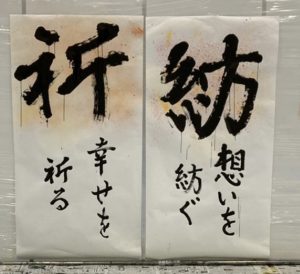 紡
想いを
紡ぐ
祈
幸せを
祈る